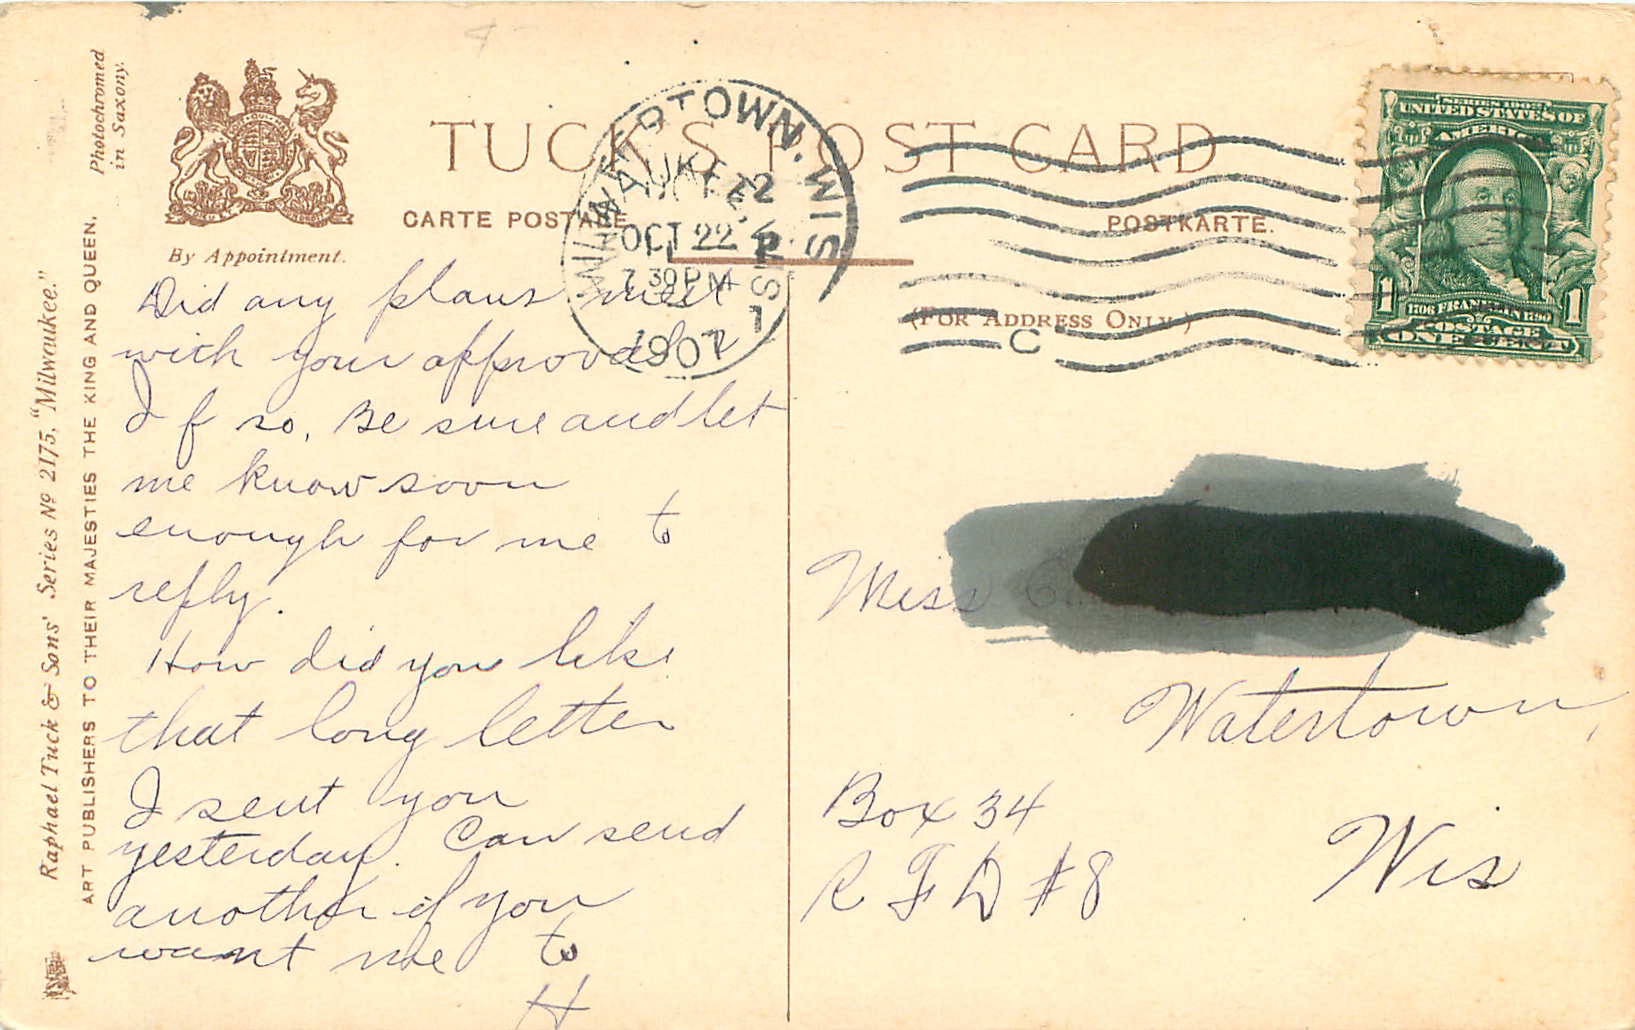 Photochromed
in Saxony.
By Appointment.
TUCK'S POST CARD
CARTE POSTALE
POSTKARTE.
(FOR ADDRESS ONLY.)
Raphael Tuck & Sons' Series Nº 2175, "Milwaukee."
ART PUBLISHERS TO THEIR MAJESTIES THE KING AND QUEEN.
WATERTOWN. WIS
MILWAUKEE, WIS.
OCT 22
7 30 PM
1907
C
SERIES 1902
UNITED STATES OF
AMERICA
1706 FRANKLIN 1790
POSTAGE
1 1
ONE CENT
Did any plans meet
with your approval?
If so, Be sure and let
me know soon
enough for me to
reply.
How did you like
that long letter
I sent you
yesterday. Can send
another if you
want me to
H
Miss
Watertown,
Wis
Box 34
R F D #8